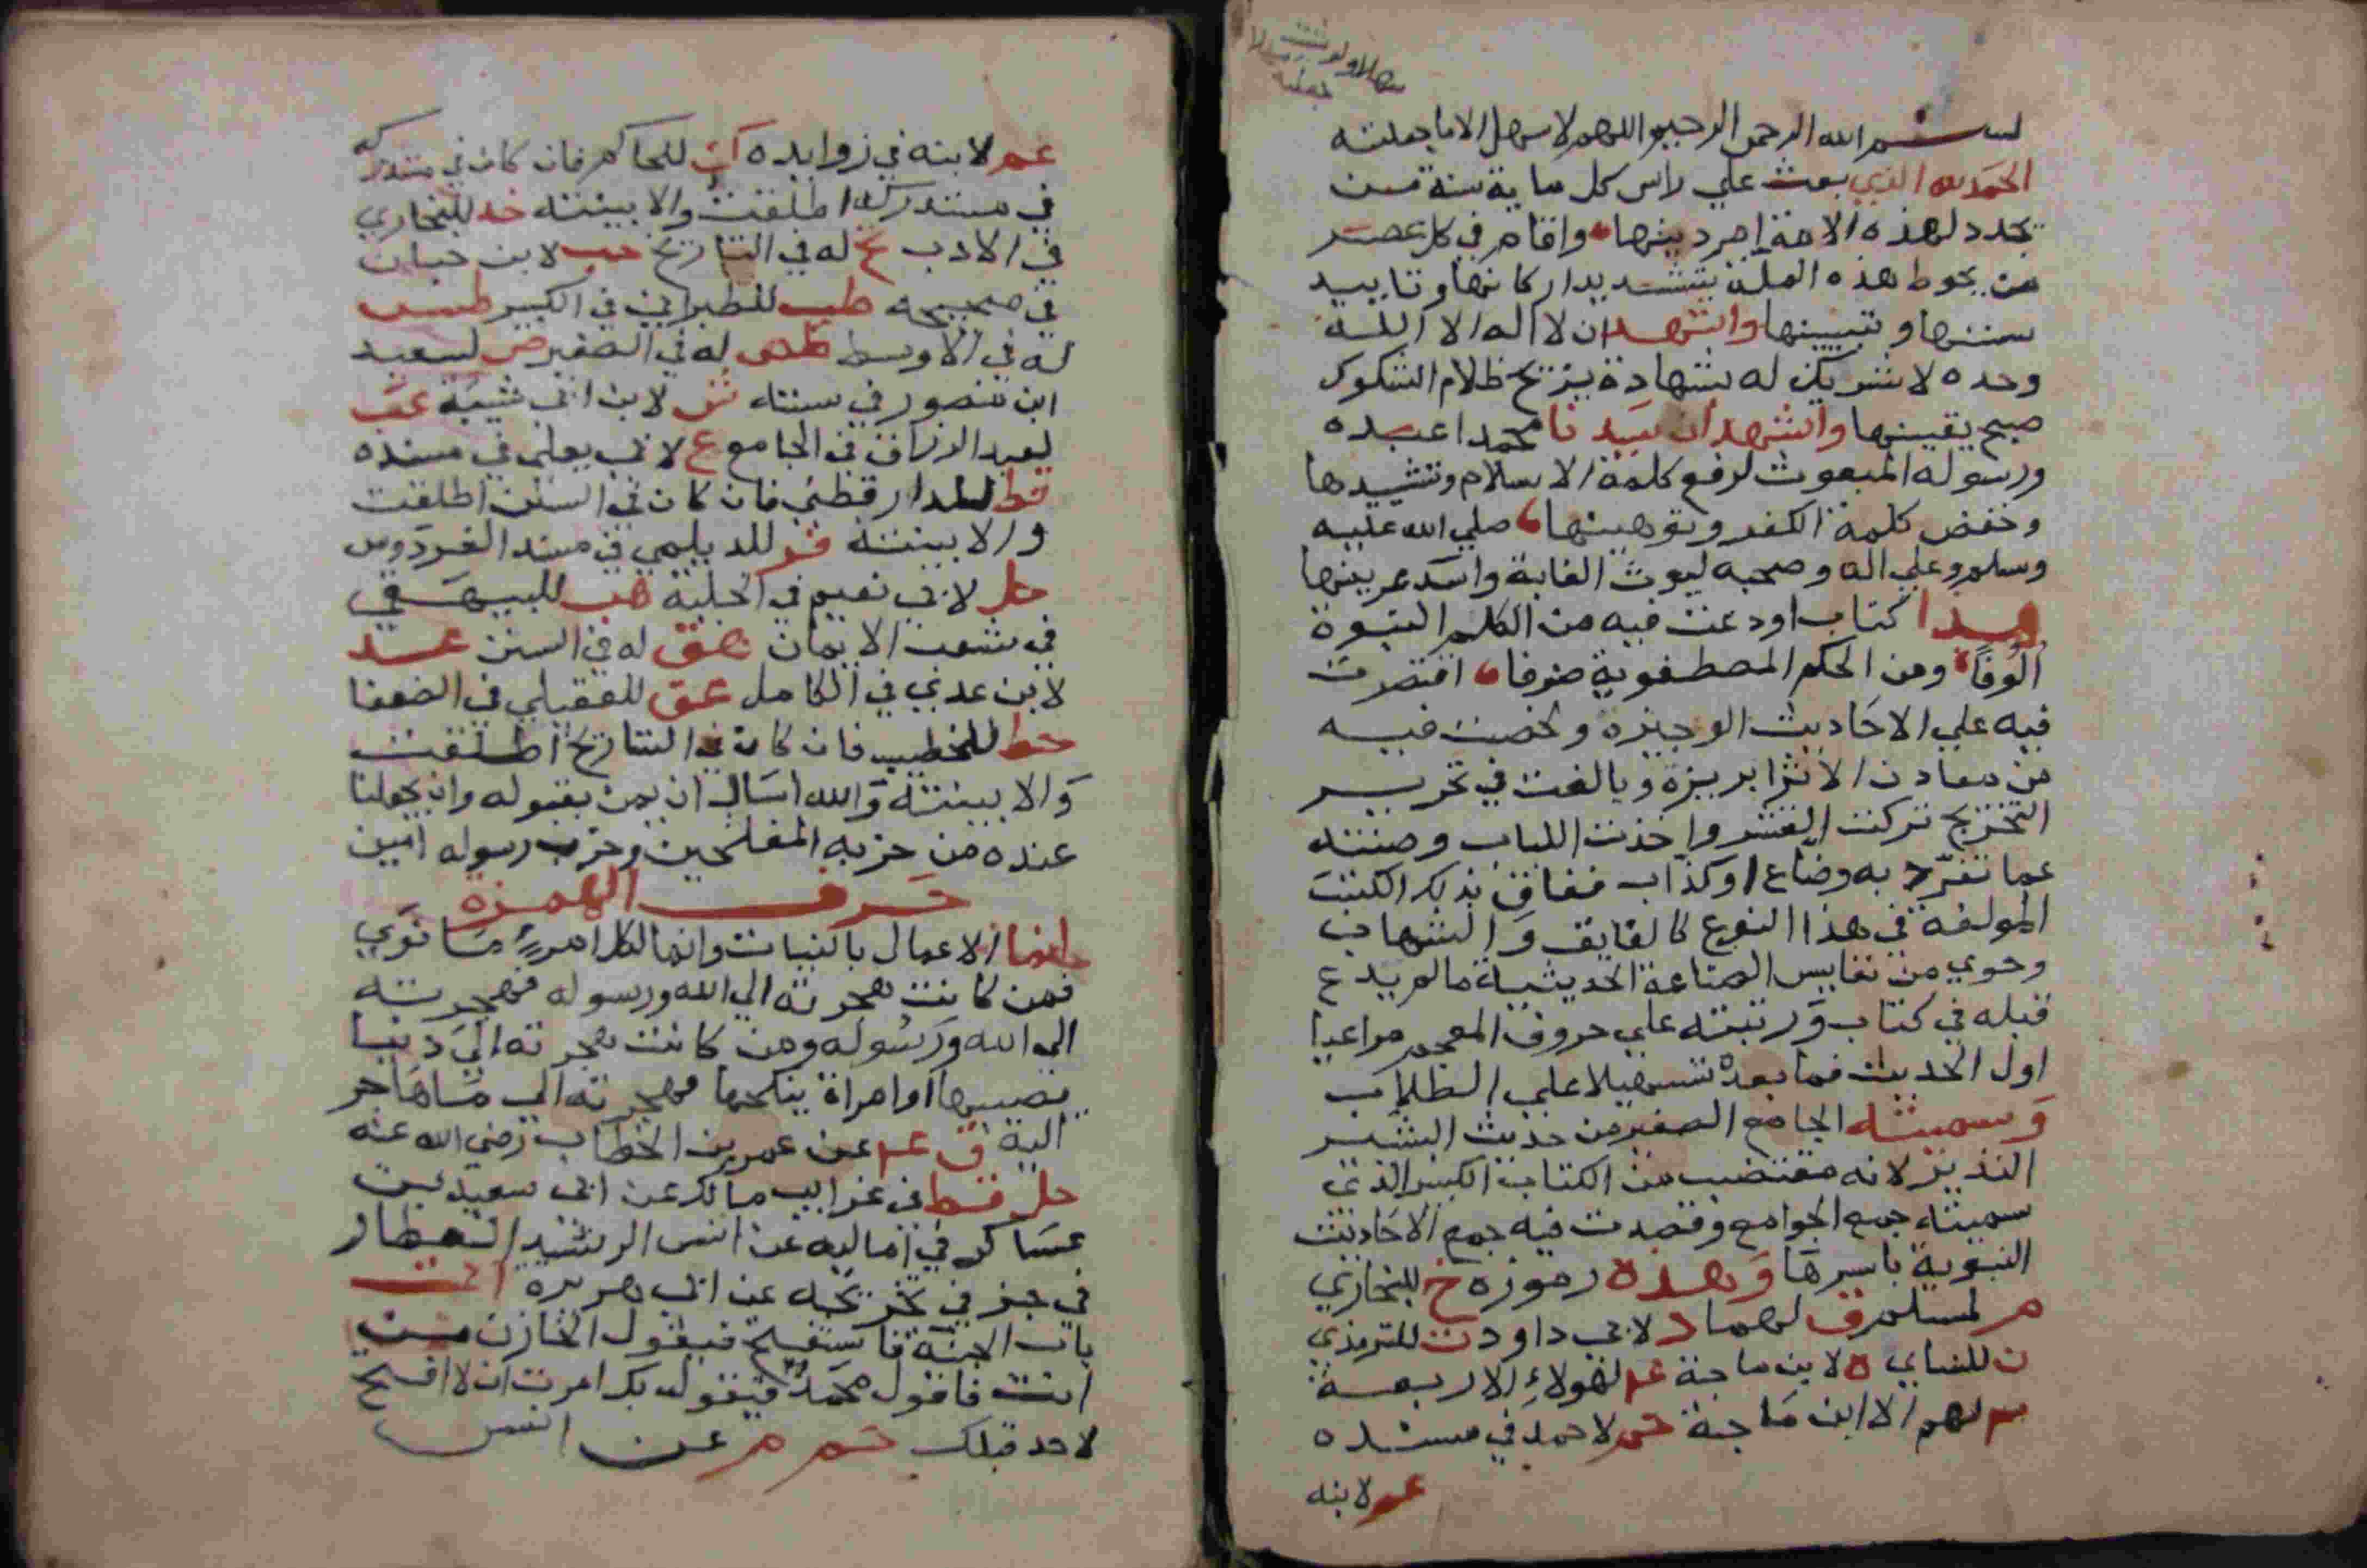 بسم الله الرحمن الرحيم اللهم لا سهل الا ما جعلته
الحمد لله الذي بعث علي راس كل ماية سنة من
يجدد لهذه الامة امر دينها واقام في كل عصر
من يحوط هذه الملة بتشديد اركانها وتاييد
سننها وتبيينها واشهد ان لا اله الا الله
وحده لا شريك له شهادة يزيح ظلام الشكوك
صبح يقينها واشهد ان سيدنا محمدا عبده
ورسوله المبعوث لرفع كلمة الاسلام وتشيدها
وخفض كلمة الكفر وتوهينها صلي الله عليه
وسلم وعلي اله وصحبه ليوث الغابة واسد عرينها
هذا كتاب اودعت فيه من الكلم النبوة
الوفا ومن الحكم المصطفوية صنوفا اقتصرت
فيه علي الاحاديث الوجيزة ولخصت فيه
من معادن الاثر ابريزه وبالغت في تحرير
التخريج تركت القشر واخذت اللباب وصنته
عما تفرد به وضاع او كذاب ففاق بذلك الكتب
المولفة في هذا النوع كالفايق والشهاب
وحوي من نفايس الصناعة الحديثية ما لم يدع
قبله في كتاب ورتبته علي حروف المعجم مراعيا
اول الحديث فما بعده تسهيلا علي الطلاب
وسميته الجامع الصغير من حديث البشير
النذير لانه مقتضب من الكتاب الكبير الذي
سميته جمع الجوامع وقصدت فيه جمع الاحاديث
النبوية باسرها وهذه رموزه خ للبخاري
م لمسلم ق لهما د لابي داود ت للترمذي
ن للنساي ه لابن ماجة عم لهولاء الاربعة
لهم الا ابن ماجة حم لاحمد في مسنده
عم لابنه
عم لابنه في زوايده ك للحاكم فان كان في مستدركه
في مستدركه اطلقت والا بينته خد للبخاري
في الادب تخ له في التاريخ حب لابن حبان
في صحيحه طب للطبراني في الكبير طس
له في الاوسط طص له في الصغير ص لسعيد
ابن منصور في سننه ش لابن ابي شيبة عب
لعبد الرزاق في الجامع ع لابي يعلي في مسنده
قط للدارقطني فان كان في السنن اطلقت
والا بينته فر للديلمي في مسند الفردوس
حل لابي نعيم في الحلية هب للبيهقي
في شعب الايمان هق له في السنن عد
لابن عدي في الكامل عق للعقيلي في الضعفا
خط للخطيب فان كان في التاريخ اطلقت
والا بينته والله اسال ان يمن بقبوله وان يجعلنا
عنده من حزبه المفلحين وحزب رسوله امين
حرف الهمزة
انما الاعمال بالنيات وانما لكل امرئ ما نوي
فمن كانت هجرته الي الله ورسوله فهجرته
الي الله ورسوله ومن كانت هجرته الي دنيا
يصيبها او امراة ينكحها فهجرته الي ما هاجر
اليه ق عم عن عمر بن الخطاب رضي الله عنه
حل قط في غرايب مالك عن ابي سعيد بن
عساكر في اماليه عن انس الرشيد العطار
في جز في تخريجه عن ابي هريرة اتت
باب الجنة فاستفتح فيقول الخازن من
انت فاقول محمد فيقول بك امرت ان لا افتح
لاحد قبلك حم م عن انس